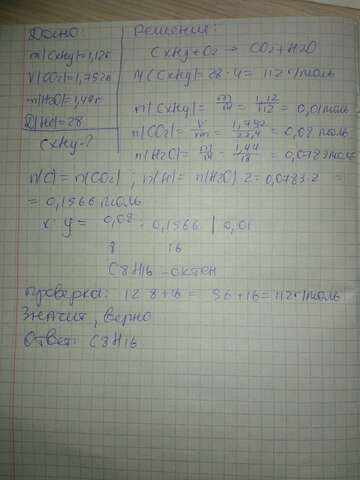 Дано:
m(CxHy)=1,12г
V(CO2)=1,792л
m(H2O)=1,41г
D(He)=28
CxHy-?
Решение:
CxHy+O2 → CO2+H2O
M(CxHy)=28·4=112 г/моль
n(CxHy)=m/M=1,12/112=0,01моль
n(CO2)=V/Vm=1,792/22,4=0,08 моль
n(H2O)=m/M=1,41/18=0,0783моль
n(C)=n(CO2); n(H)=n(H2O)·2=0,0783·2=
=0,1566 моль
x:y=0,08:0,1566 | 0,01
8 16
C8H16-октен
Проверка: 12·8+16=96+16=112г/моль
Значит, верно
Ответ: C8H16